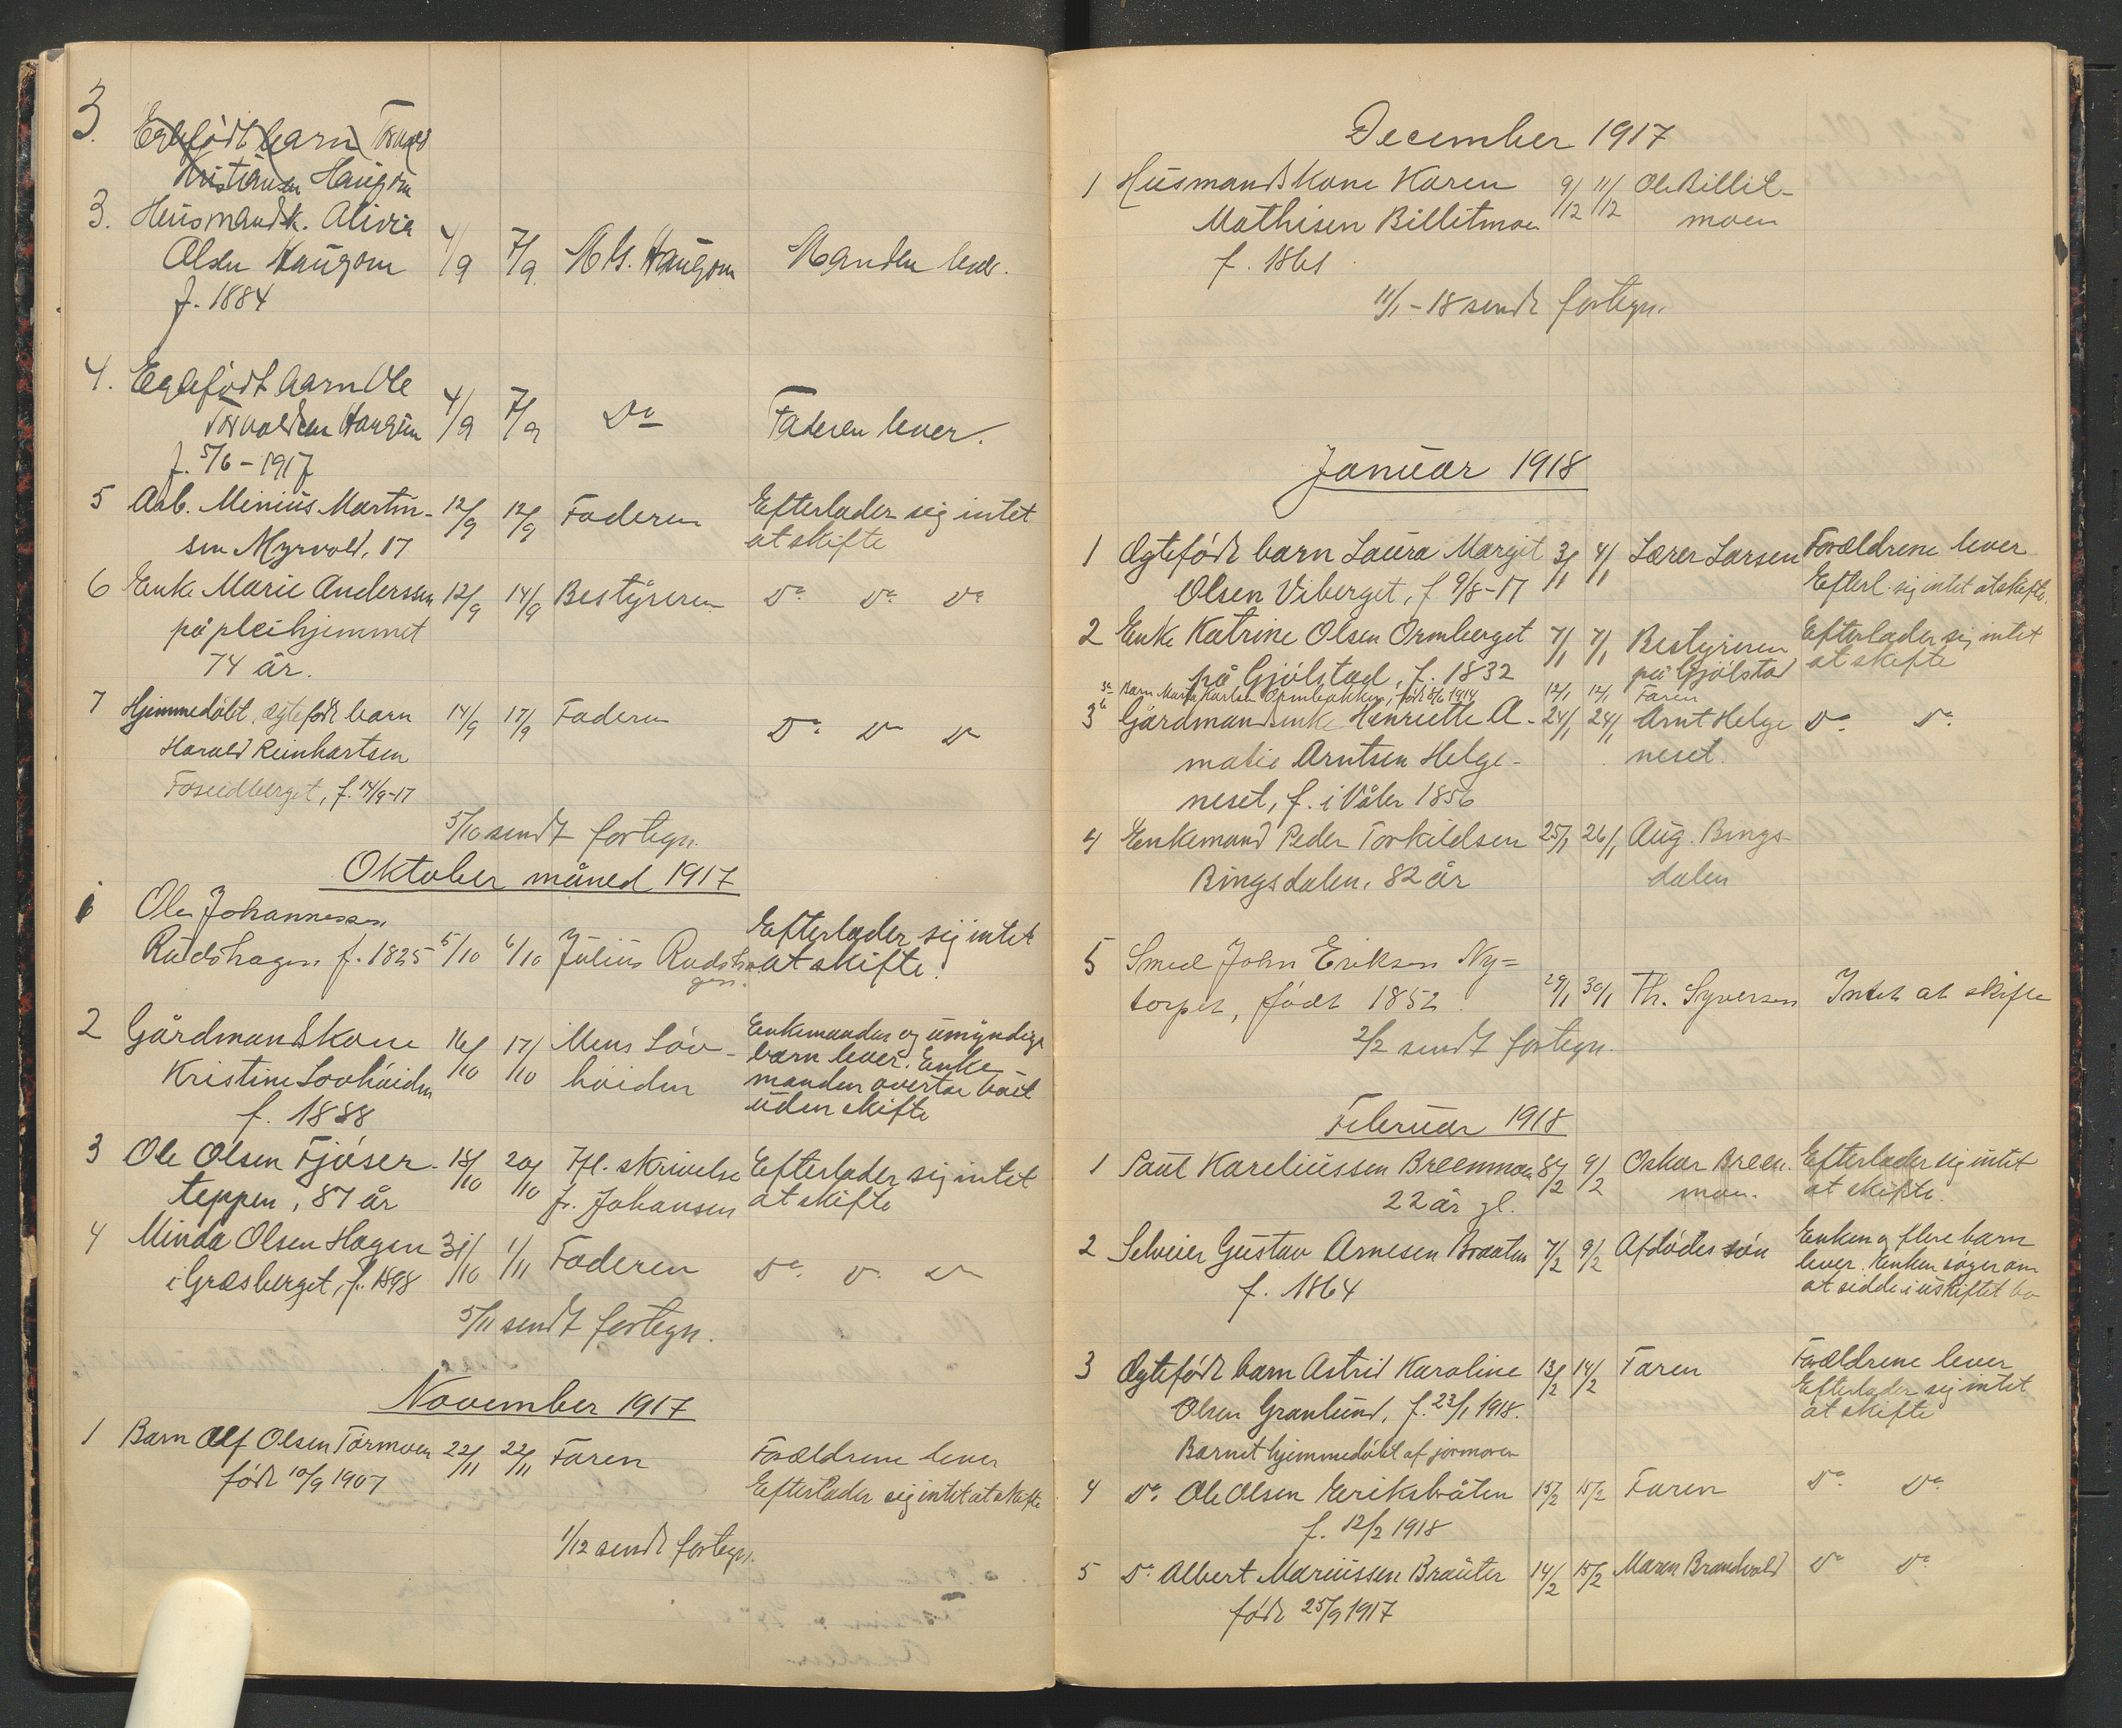 3.
Egtefødt barn Torvald
Kristiansen Haugom
3. Husmandsk. Alivia
Olsen Haugom 4/9 7/9 M Haugom Manden lever.
f. 1884
4. Egtefødt barn Ole
Torvaldsen Haugom 4/9 7/9 Do Faderen lever.
f. 5/6 - 1917
5 Arb. Minius Martin- 12/9 12/9 Faderen Efterlader sig intet
sen Myrvold, 17 at skifte
6 Enke Marie Anderssen 12/9 14/9 Bestyreren Do. Do. Do
på pleihjemmet
74 år.
7 Hjemmedøbt, ægtefødt barn 14/9 17/9 Faderen Do. Do Do
Harald Reinhartsen
Foseidberget, f. 14/9-17
5/10 sendt fortegn.
Oktober måned 1917
1 Ole Johannessen Efterlader sig intet
Rudshagen f. 1825 5/10 6/10 Julius Rudsha- at skifte.
gen.
2 Gårdmandskone 16/10 17/10 Mens Løv- Enkemanden og umyndige
Kristine Lovhøiden høiden barn lever. Enke-
f. 1888 manden overtar boet
uden skifte
3 Ole Olsen Fjøser- 18/10 20/10 Ifl. skrivelse Efterlader sig intet
teppen, 87 år fr. Johansen at skifte
4 Minda Olsen Hagen 31/10 1/11 Faderen Do. Do. Do
i Græsberget, f. 1898
5/11 sendt fortegn.
November 1917
1 Barn Alf Olsen Tørmoen 22/11 22/11 Faren Forældrene lever
født 10/9 1907 Efterlader sig intet at skifte
1/12 sendt fortegn.
December 1917
1 Husmandskone Karen 9/12 11/12 Ole Billit-
Mathisen Billitmoen moen
f. 1861
11/1 - 18 sendt fortegn.
Januar 1918
1 Ægtefødt barn Laura Margit 3/1 4/1 Lærer Larsen Forældrene lever
Olsen Viberget, f 9/8-17 Efterl. sig intet at skifte.
2 Enke Katrine Olsen Ormberget 7/1 7/1 Bestyreren Efterlader sig intet
på Gjölstad, f. 1832 på Gjölstad at skifte
3a Barn Marta Karlsen Ormbakken, født 8/6 1914 12/1 12/1 Faren
3b Gårdmandsenke Henriette A- 24/1 24/1 Arnt Helge Do. Do.
malie Arntsen Helge- neset.
neset, f. i Våler 1856
4 Enkemand Peder Torkildsen 25/1 26/1 Aug. Brings-
Bingsdalen, 82 år dalen
5 Smed John Eriksen Ny=
torpet, født 1852. 29/1 30/1 Th. Syversen Intet at skifte
2/2 sendt fortegn.
Februar 1918
1 Paul Kareliussen Breenmoen 8/2 9/2 Oskar Breen- Efterlader sig intet
22 år gl. moen. at skifte.
2 Selveier Gustav Arnesen Braaten 7/2 9/2 Afdødes søn Enken og flere barn
f. 1864 lever. Enken søger om
at sidde i uskiftet bo
3 Ægtefødt barn Astrid Karoline 13/2 14/2 Faren Forældrene lever
Olsen Granlund, f. 23/1 1918. Efterlader sig intet
Barnet hjemmedøbt af jormoren at skifte
4 Do. Ole Olsen Eriksbråten 15/2 15/2 Faren Do. Do.
f. 12/2 1918
5 Do. Albert Mariussen Bråuter 14/2 15/2 Maren Brandvold Do Do.
født 25/9 1917